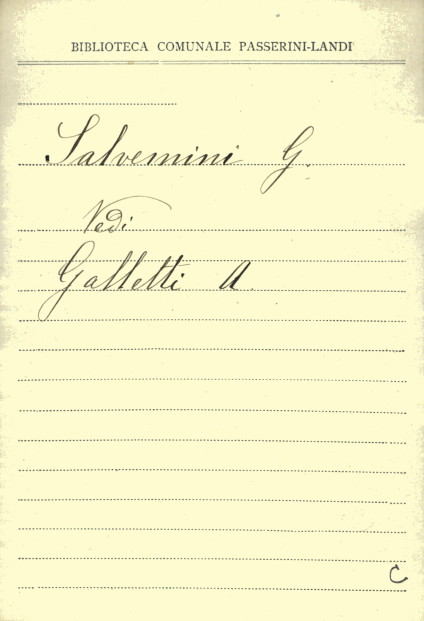 BIBLIOTECA COMUNALE PASSERINI-LANDI
Salvemini G.
Vedi
Galletti A.
C